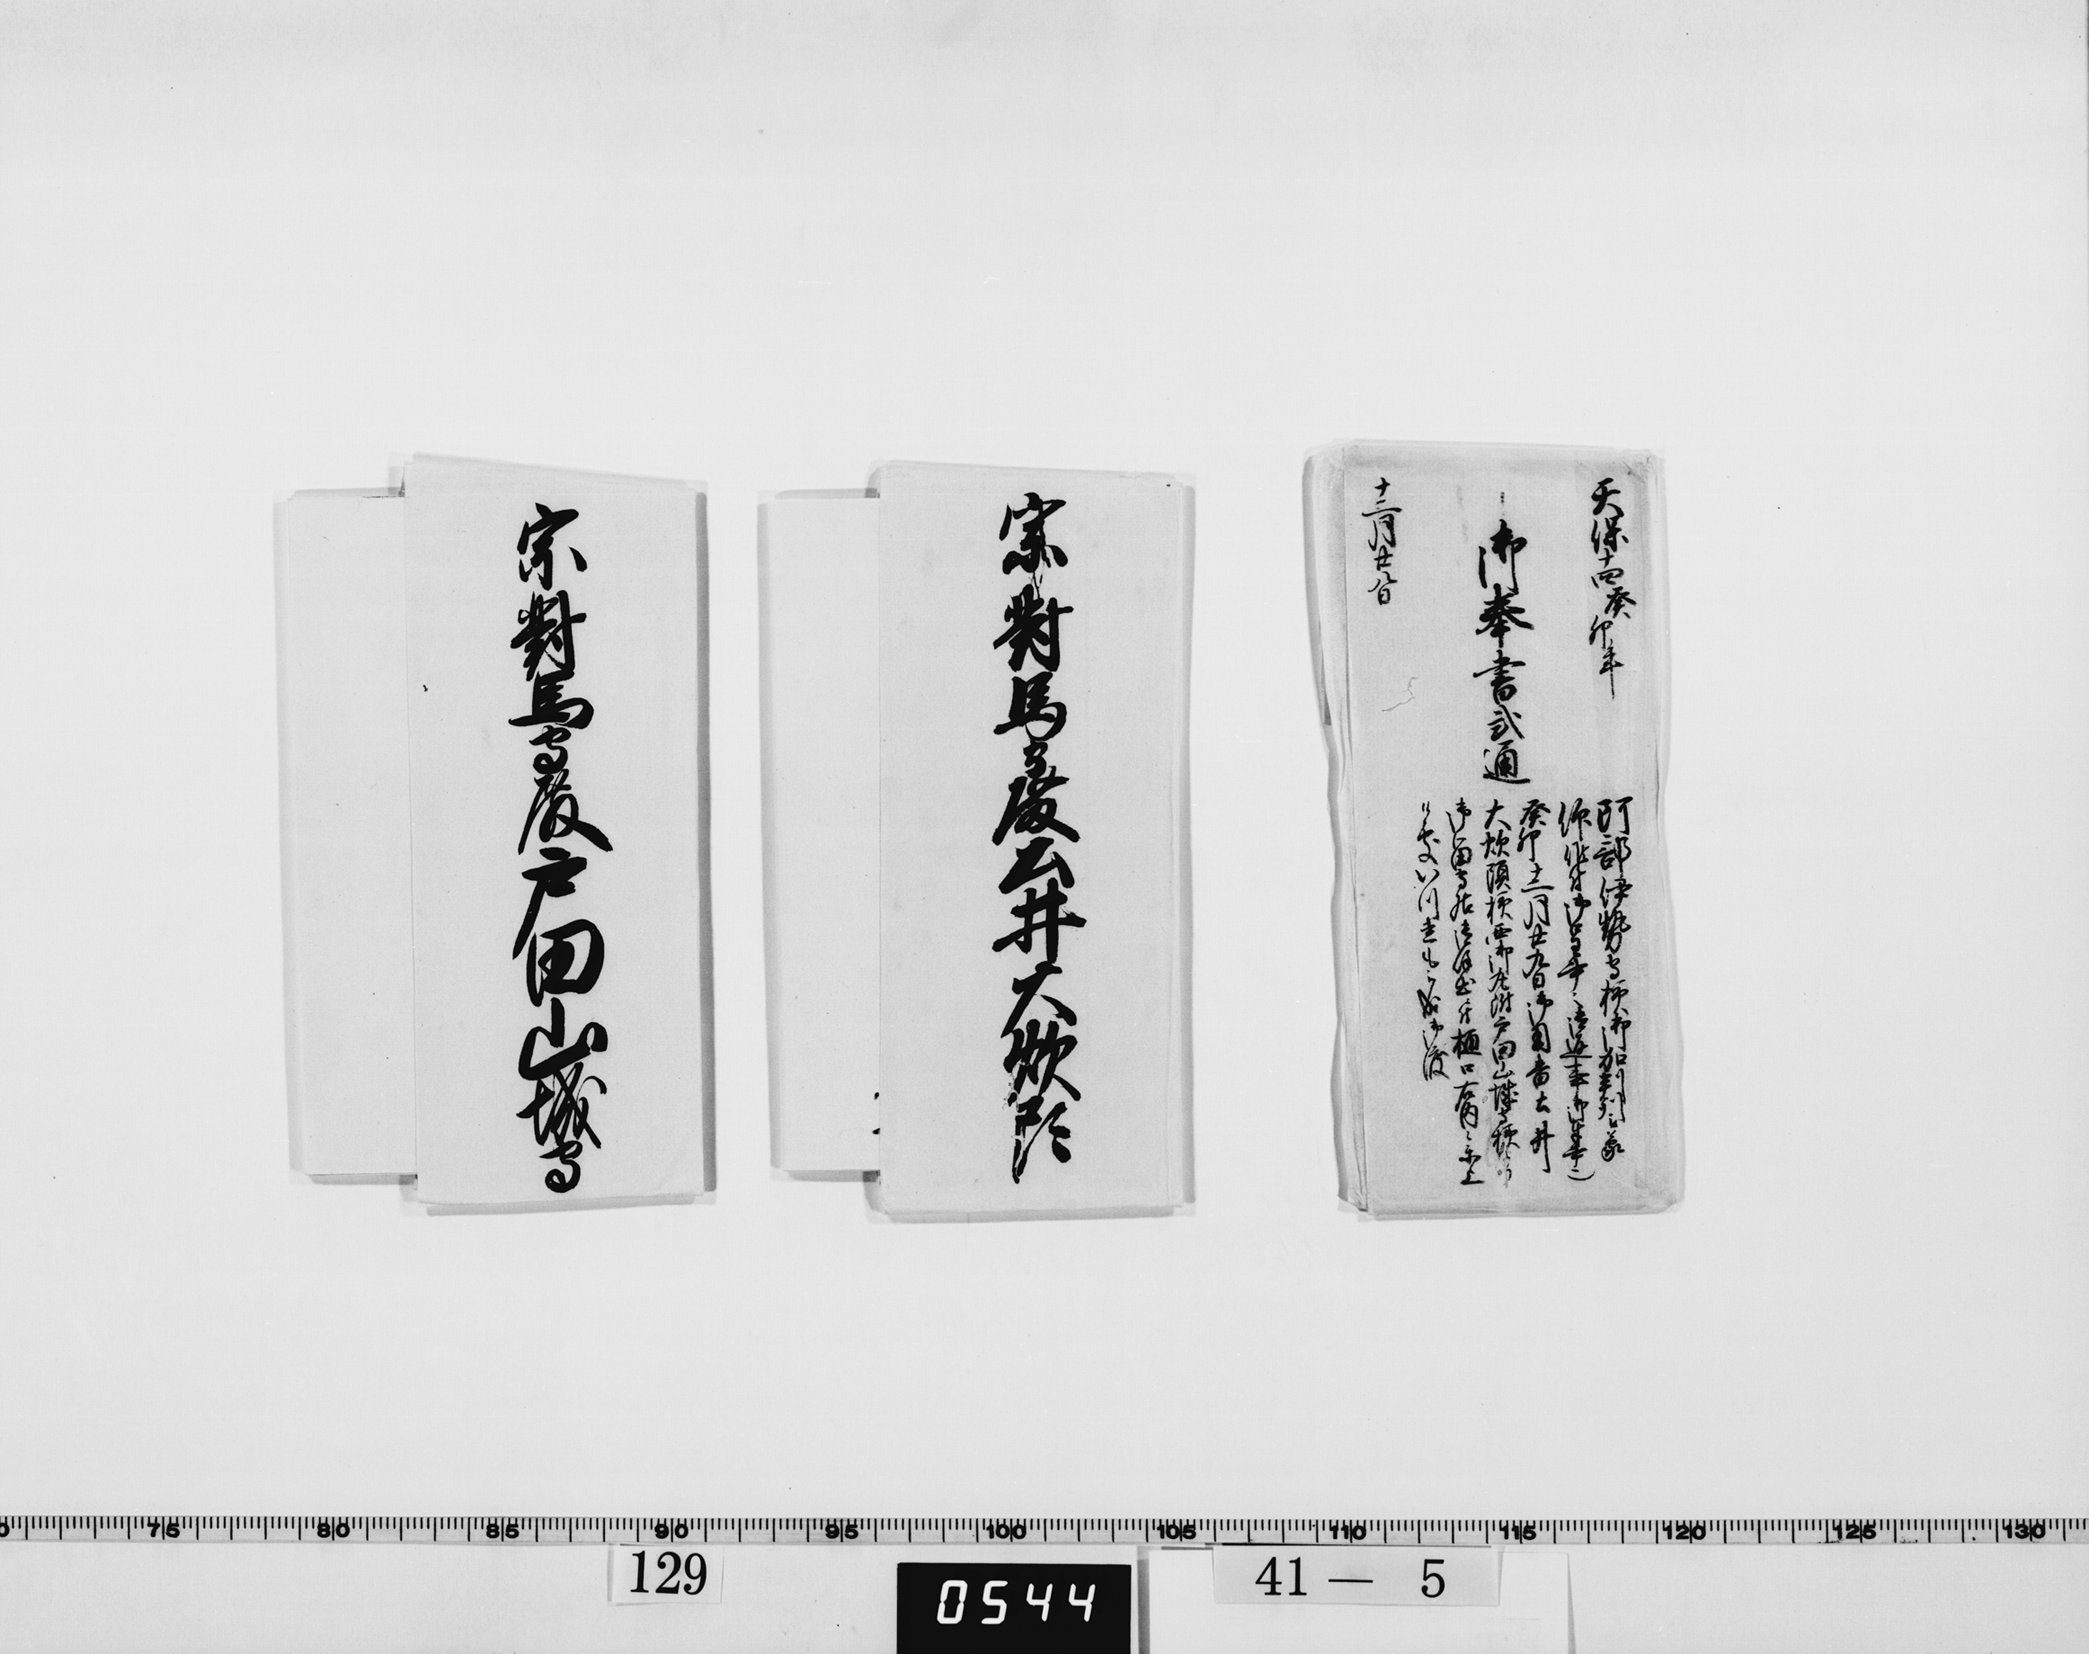 天保十四癸卯年
御奉書弐通
十二月廿八日
阿部伊勢守様御加判之蒙
仰候付御
癸卯十二月廿九日御用番土井
大炊頭様西御丸附戸田山城守様
御留守居
御渡
宗對馬守殿 土井大炊頭
宗對馬守殿 戸田山城守
75 80 85 90 95 100 105 110 115 120 125 130
129
0544
41 — 5